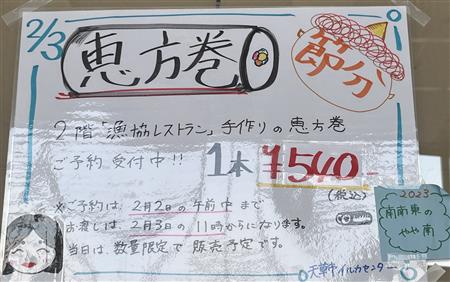 2/3
恵方巻
節分
2階「漁協レストラン」手作りの恵方巻
ご予約受付中!!
1本 ¥540-
(税込)
※ご予約は、2月2日の午前中まで
お渡しは、2月3日の11時からになります。
当日は、数量限定で販売予定です。
2023
南南東の
やや南
天草市イルカセンター